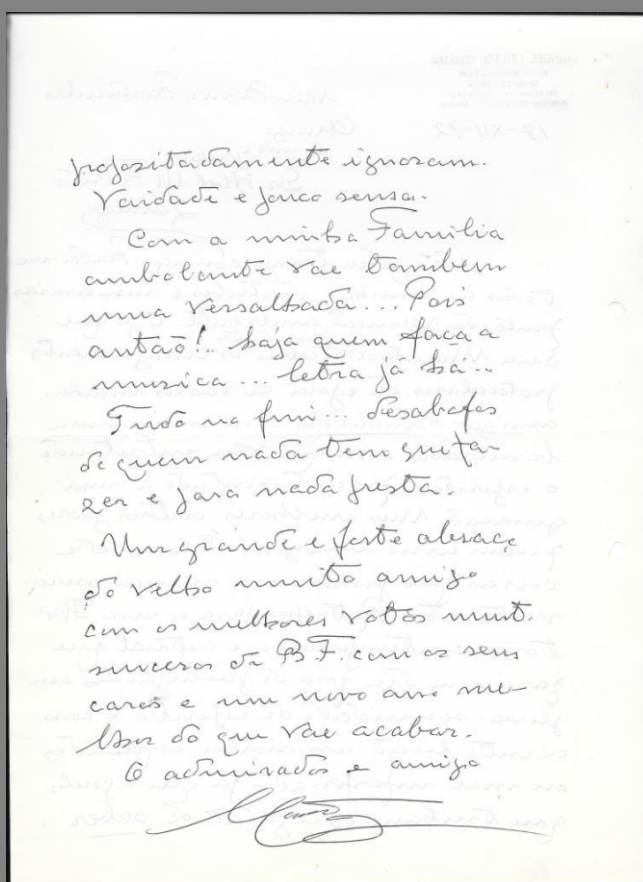 propositadamente ignoram.
Vaidade e pouco senso.
Com a minha Familia
ambolante vae tambem
uma versalhada... Pois
antão! haja quem faça a
muzica... letra já há...
Tudo no fim... desabafos
de quem nada tem que fa-
zer e para nada presta.
Um grande e forte abraço
do velho muito amigo
com os melhores votos muit.
sinceros de B.F. com os seus
caros e um novo ano me-
lhor do que vae acabar.
O admirador e amigo